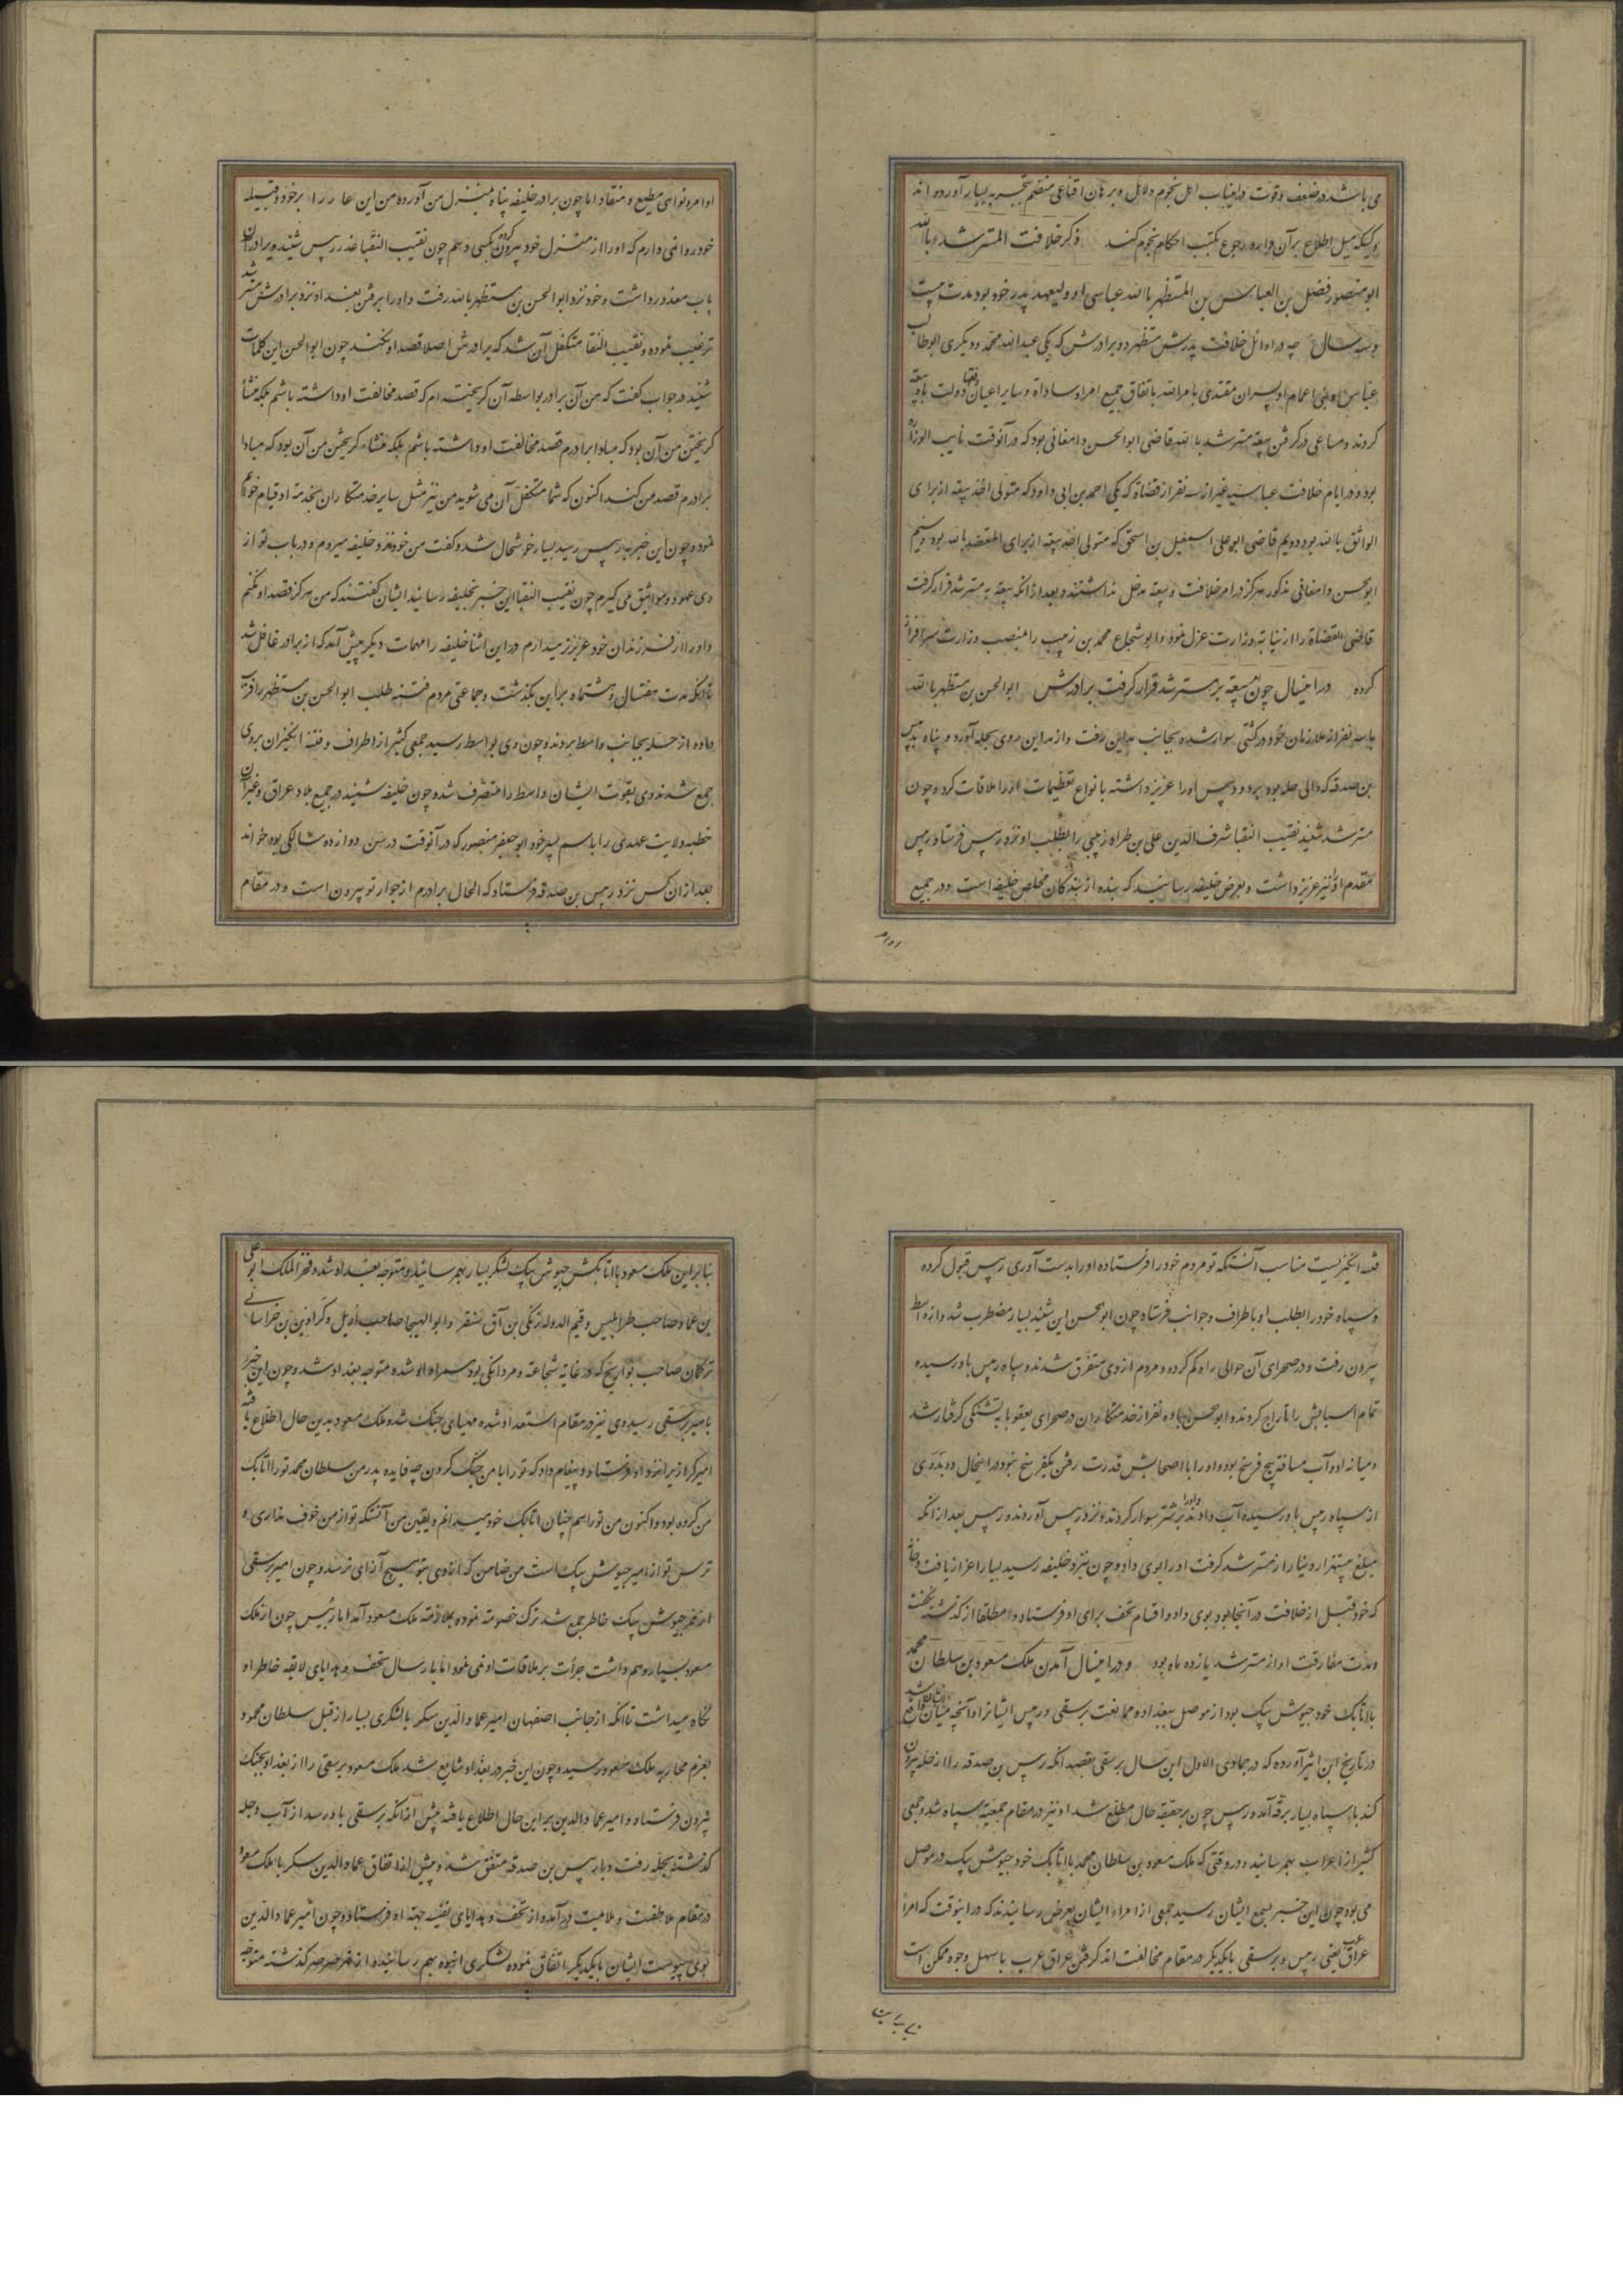 می باشد در ضعف و قوت و در این باب اهل نجوم دلایل و برهان اقناعی منضم بتجربه بسیار آورده اند
و کسیکه میل اطلاع بر آن دارد رجوع بکتب احکام نجوم کند ذکر خلافت المسترشد بالله
ابو منصور فضل بن العباس بن المستظهر بالله عباسی او ولیعهد پدر خود بود مدت بیست
و سه سال چه در اوائل خلافت پدرش مستظهر دو برادرش که یکی عبدالله محمد و دیگری ابوطالب
عباس او بنی اعمام او پسران مقتدی بامرالله باتفاق جمیع امرا و سادات و سایر اعیان و فقها دولت با وی بیعة
کردند و مساعی در گرفتن بیعة مسترشد بالله قاضی ابوالحسن دامغانی بود که در آنوقت نایب الوزارة
بود و در ایام خلافت عباسیه غیر از سه نفر از قضاة که یکی احمد بن ابی داود که متولی اخذ بیعة از برای
الواثق بالله بود دویم قاضی ابو علی اسمعیل بن اسحق که متولی اخذ بیعة از برای المعتضد بالله بود سیم
ابوالحسن دامغانی مذکور هرگز در امر خلافت و بیعة مدخل نداشتند و بعد از آنکه بیعة به مسترشد قرار گرفت
قاضی القضاة را از نیابة وزارت عزل نمود و ابو شجاع محمد بن زبیب را بمنصب وزارت سرافراز
کرده در اینسال چون بیعة بر مسترشد قرار گرفت برادرش ابوالحسن بن مستظهر بالله
با سه نفر از ملازمان خود در کشتی سوار شده بجانب مداین رفت و از مداین روی بحله آورد و پناه بدبیس
بن صدقه که والی حله بود برد و دبیس او را عزیز داشته بانواع تعظیمات او را ملاقات کرد و چون
مسترشد شنید نقیب النقبا شرف الدین علی بن طراد زینبی را بطلب او نزد دبیس فرستاد دبیس
مقدم او را نیز عزیز داشت و بعرض خلیفه رسانید که بنده از بندگان مخلص خلیفه است و در جمیع
اوامر
اوامر و نواهی مطیع و منقاد اما چون برادر خلیفه پناه بمنزل من آورده من این عار را بر خود و قبیله
خود روا نمی دارم که او را از منزل خود بیرون کرده بکسی دهم چون نقیب النقبا عذر دبیس شنید ویرا در آن
باب معذور داشت و خود نزد ابوالحسن بن مستظهر بالله رفت و او را برفتن بغداد نزد برادرش مسترشد
ترغیب نموده و نقیب النقبا متکفل آن شد که برادرش اصلا قصد او نکند چون ابوالحسن این کلمات
شنید در جواب گفت که من آن برادر بواسطه آن گریخته ام که قصد مخالفت او داشته باشم بلکه منشأ
گریختن من آن بود که مبادا برادرم قصد مخالفت او داشته باشم بلکه منشاء گریختن من آن بود که مبادا
برادرم قصد من کند اکنون که شما متکفل آن می شوید من نیز مثل سایر خدمتکاران بخدمة او قیام خواهم
نمود و چون این خبر بدبیس رسید بسیار خوشحال شد و گفت من خود نزد خلیفه میروم و در باب تو از
وی عهود و مواثیق می گیرم چون نقیب النقبا این خبر بخلیفه رسانید ایشان گفتند که من هرگز قصد او نکنم
و او را از فرزندان خود عزیزتر میدارم در این اثنا خلیفه را مهمات دیگر پیش آمد که از برادر غافل شد
تا آنکه مدت هفتسال و هشتماه بر این بگذشت و جماعتی مردم فتنه طلب ابوالحسن بن مستظهر را فریب
داده از حله بجانب واسط بردند و چون وی بواسط رسید جمعی کثیر از اطراف و فتنه انگیزان بر وی
جمع شدند وی بقوت ایشان واسط را متصرف شد و چون خلیفه شنید در جمیع بلاد عراق و غیر آن
خطبه ولایت عهدی را باسم پسر خود ابو جعفر منصور که در آنوقت در سن دوازده سالگی بود خواند
بعد از آن کس نزد دبیس بن صدقه فرستاد که الحال برادرم از جوار تو بیرون است و در مقام
فتنه انگیزیست مناسب آنستکه تو مردم خود را فرستاده او را بدست آوری دبیس قبول کرده
و سپاه خود را بطلب او باطراف و جوانب فرستاد چون ابوالحسن این شنید بسیار مضطرب شد و از واسط
بیرون رفت و در صحرای آن حوالی راه گم کرده و مردم از وی متفرق شدند و سپاه دبیس باو رسیده
تمام اسبابش را تاراج کردند و ابوالحسن با ده نفر از خدمتکاران در صحرای یعقوبا بتشنگی گرفتار شد
و میانه او و آب مسافة پنج فرسخ بود و او را با اصحابش قدرت رفتن یکفرسخ نبود در اینحال دو بدوی
از سپاه دبیس باو رسیده آب دادند و او را بر شتر سوار کردند و نزد دبیس آوردند و دبیس بعد از آنکه
مبلغ بیستهزار دینار از مسترشد گرفت او را بوی داد و چون بنزد خلیفه رسید بسیار اعزاز یافت و خانه
که خود قبل از خلافت در آنجا بود بوی داد و اقسام تحف برای او فرستاد و مطلقا از گذشته نگفت
و مدت مفارقت او از مسترشد یازده ماه بود و در اینسال آمدن ملک مسعود بن سلطان محمد
با اتابک خود جیوش بیک بود از موصل ببغداد و ممانعت برسقی و دبیس ایشانرا و آنچه میان ایشان واقع شد
در تاریخ ابن اثیر آورده که در جمادی الاول این سال برسقی بقصد آنکه دبیس بن صدقه را از حله بیرون
کند با سپاه بسیار برقه آمد و دبیس چون بر حقیقه حال مطلع شد او نیز در مقام جمعیة سپاه شد و جمعی
کثیر از اعراب بهم رسانید و در وقتی که ملک مسعود بن سلطان محمد با اتابک خود جیوش بیک در موصل
می بود چون این خبر بسمع ایشان رسید جمعی از امراء ایشان بعرض رسانیدند که در اینوقت که امراء
عراق عرب یعنی دبیس و برسقی با یکدیگر در مقام مخالفت اند گرفتن عراق عرب باسهل وجوه ممکن است
بنابراین
بنابراین ملک مسعود با اتابکش جیوش بیک لشکر بسیار بهم رسانیده و متوجه بغداد شد و فخر الملک ابو علی
بن عمار صاحب طرابلس و قیم الدوله زنکی بن آق سنقر و ابو الهیجا صاحب اربل و کراوتن بن خراسانی
ترکمان صاحب بوازیج که در غایة شجاعة و مردانگی بود همراه او شده متوجه بغداد شد و چون این خبر
بامیر برسقی رسید وی نیز در مقام استعداد شده مهیای جنگ شد ملک مسعود بدین حال اطلاع یافته
امیر کرازیرا نزد او فرستاد و پیغام داد که تو را با من جنگ کردن چه فایده پدر من سلطان محمد تو را اتابک
من کرده بود و اکنون من تو را هم چنان اتابک خود میدانم و یقین من آنستکه تو از من خوف نداری و
ترس تو از امیر جیوش بیک است من ضامن که از وی بتو هیچ آزای نرسد و چون امیر برسقی
از ممر جیوش بیک خاطر جمع شد ترک خصومة نموده بملازمة ملک مسعود آمد اما دبیس چون از ملک
مسعود بسیار وهم داشت جرأت بر ملاقات او نمی نمود اما بارسال تحف و هدایای لایقه خاطر او
نگاه میداشت تا آنکه از جانب اصفهان امیر عماد الدین سکر با لشکری بسیار از قبل سلطان محمود
بعزم محاربه ملک مسعود رسید و چون این خبر در بغداد شایع شد ملک مسعود برسقی را از بغداد بجنگ
بیرون فرستاد و امیر عماد الدین بر این حال اطلاع یافته پیش از آنکه برسقی باو رسد از آب دجله
گذشته بحله رفت و با دبیس بن صدقه متفق شد و پیش از اتفاق عماد الدین سکر با ملک مسعود
در مقام ملاطفت و ملایمت در آمد و از تحف و هدایای نفیسه جهة او فرستاد و چون امیر عماد الدین
بوی پیوست ایشان با یکدیگر اتفاق نموده لشکری انبوه بهم رسانیده از نهر صرصر گذشته متوجه